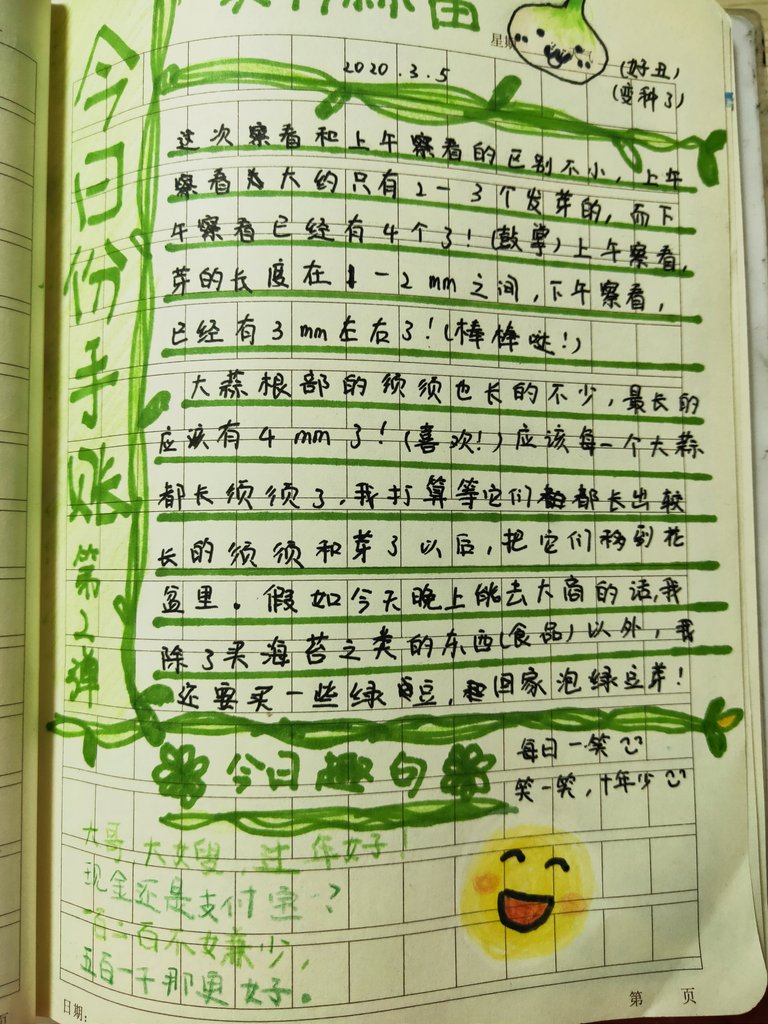 蒜苗
星期
2020.3.5
(好丑)
(变种了)
今日份手账第2弹
这次察看和上午察看的区别不小，上午
察看为大约只有2-3个发芽的，而下
午察看已经有4个了！(鼓掌)上午察看，
芽的长度在1-2mm之间，下午察看，
已经有3mm左右了！(棒棒哒！)
大蒜根部的须须也长的不少，最长的
应该有4mm了！(喜欢！)应该每一个大蒜
都长须须了，我打算等它们都长出较
长的须须和芽了以后，把它们移到花
盆里。假如今天晚上能去大商的话，我
除了买海苔之类的东西(食品)以外，我
还要买一些绿豆，回家泡绿豆芽！
今日趣句
每日一笑
笑一笑，十年少
大哥，大嫂，过年好！
现金还是支付宝？
一百二百不嫌少，
五百一千那更好。
日期：
第 页